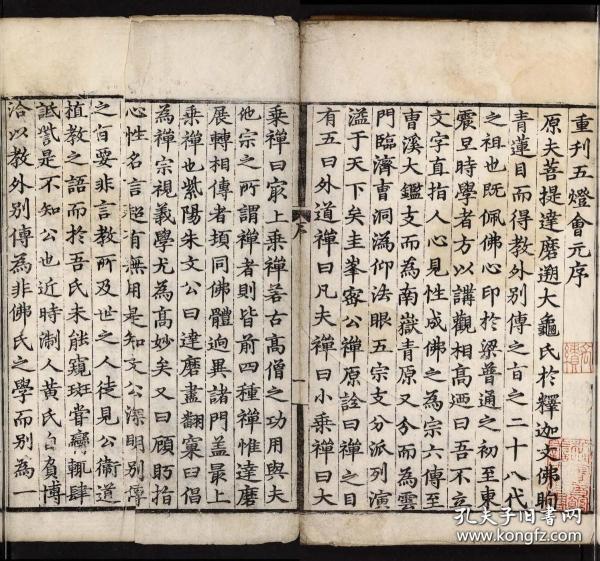 重刊五燈會元序
原夫菩提達磨遡大龜氏於釋迦文佛眴
青蓮目而得教外別傳之旨之二十八代
之祖也既佩佛心印於梁普通之初至東
震旦時學者方以講觀相高迺曰吾不立
文字直指人心見性成佛之為宗六傳至
曹溪大鑑支而為南嶽青原又分而為雲
門臨濟曹洞溈仰法眼五宗支分派列演
溢于天下矣圭峯密公禪原詮曰禪之目
有五曰外道禪曰凡夫禪曰小乘禪曰大
序
一
乘禪曰最上乘禪若古高僧之功用與夫
他宗之所謂禪者則皆前四種禪惟達磨
展轉相傳者頓同佛體逈異諸門蓋最上
乘禪也紫陽朱文公曰達磨盡翻窠臼倡
為禪宗視義學尤為高妙矣又曰顧盻指
心性名言超有無用是知文公深明別傳
之旨要非言教所及世之人徒見公衞道
植教之語而於吾氏未能窺斑嘗臠輒肆
詆訾是不知公也近時淛人黃氏自負博
洽以教外別傳為非佛氏之學而別為一
孔夫子旧书网
www.kongfz.com